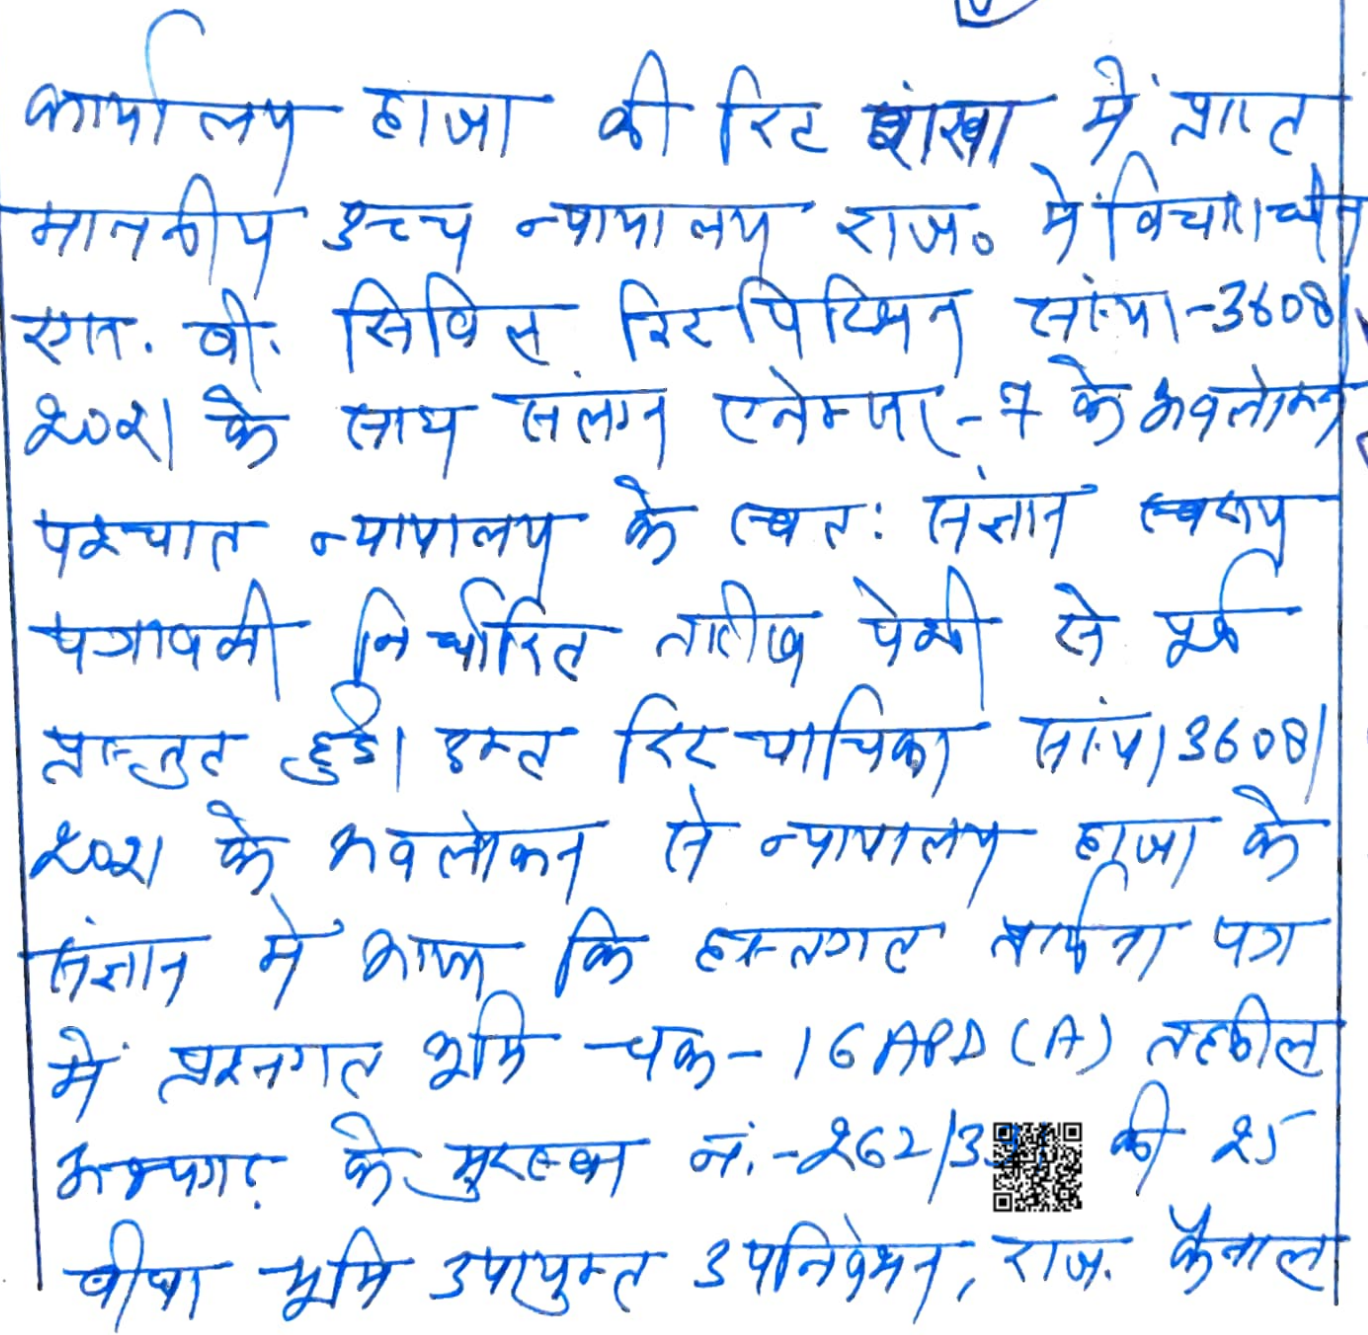 कार्यालय हाजा की रिट शाखा में प्राप्त
माननीय उच्च न्यायालय राज० में विचाराधीन
एस. बी. सिविल रिट पिटिशन संख्या-3608/
2021 के साथ संलग्न एनेक्जर-7 के अवलोकन
पश्चात न्यायालय के स्वत: संज्ञान स्वरूप
पत्रावली निर्धारित तारीख पेशी से पूर्व
प्रस्तुत हुई। उक्त रिट याचिका संख्या 3608/
2021 के अवलोकन से न्यायालय हाजा के
संज्ञान में आया कि हस्तगत प्रार्थना पत्र
में प्रश्नगत भूमि चक-16APD(A) तहसील
अनूपगढ़ के मुरब्बा नं.-262/3 की 25
बीघा भूमि उपायुक्त उपनिवेशन, राज. कैनाल